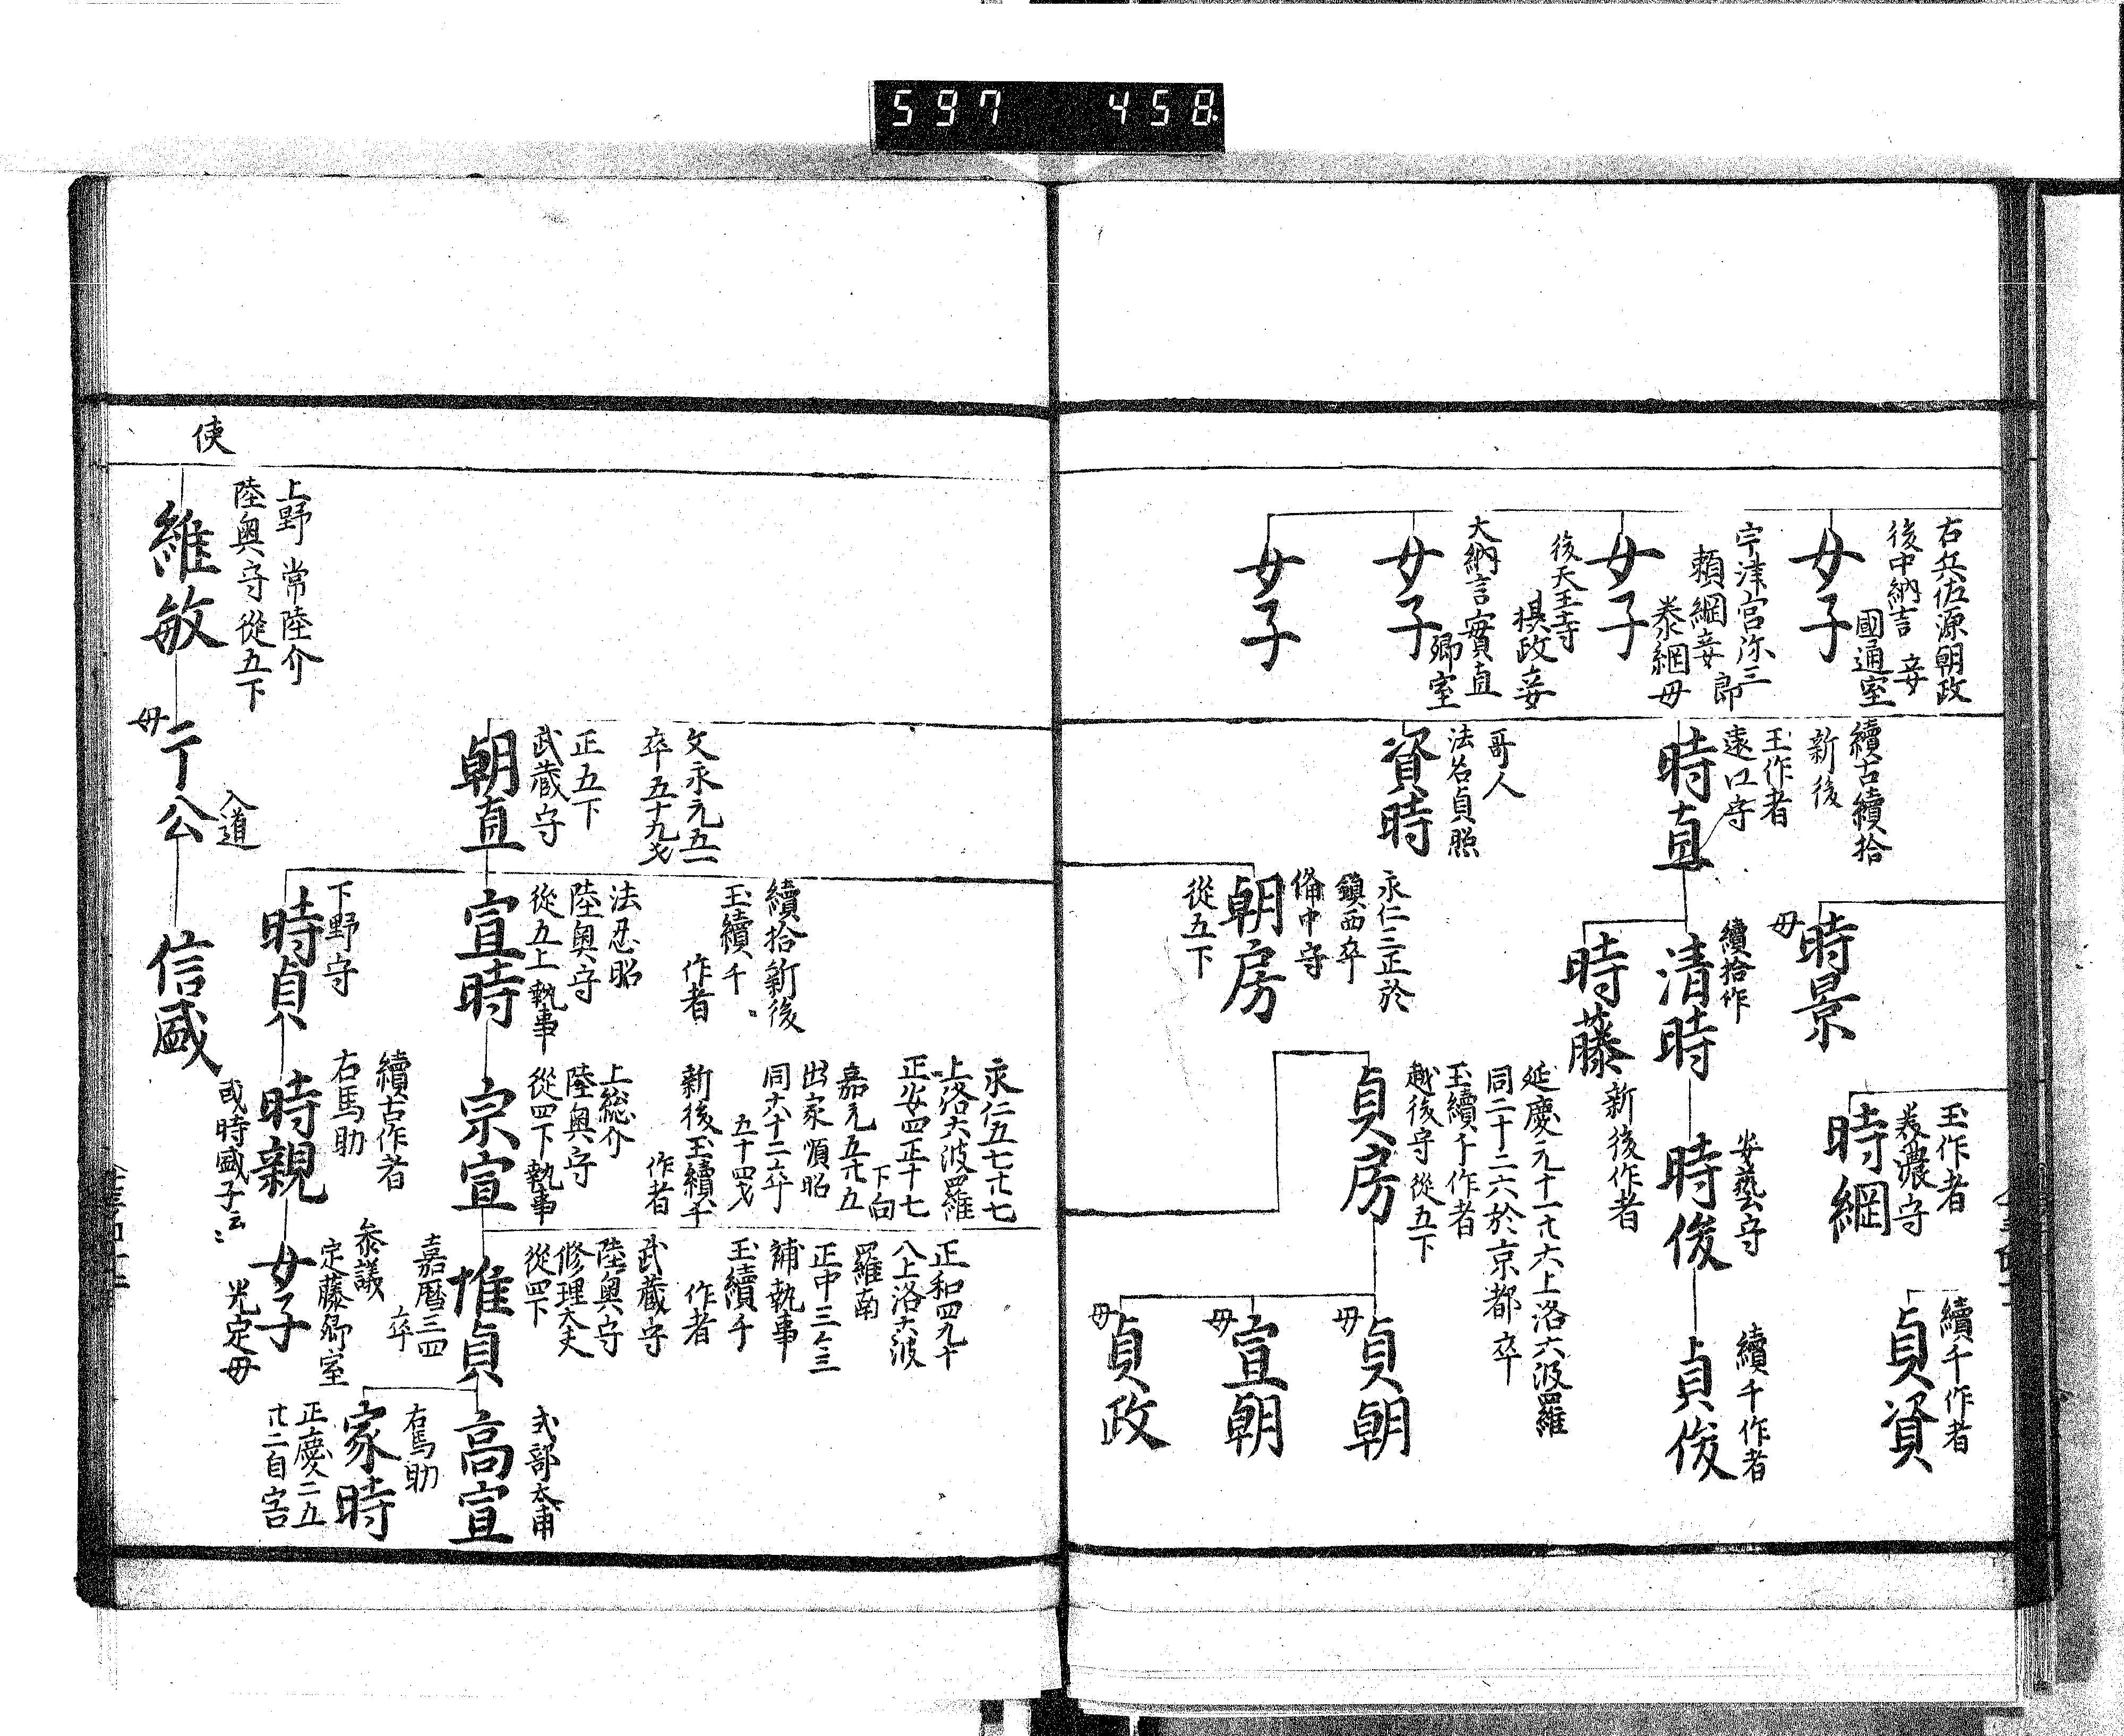 597 458
右兵佐源朝政
後中納言
妾
國通室
女子
宇津宮弥三
郎
頼綱妾
泰綱母
女子
後天王寺
摂政妾
大納言實直
卿室
女子
女子
續古續拾
新後
玉作者
遠口守
時直
哥人
法名貞照
資時
母
時景
續拾作
清時
時藤
新後作者
永仁三正於
鎮西卒
備中守
朝房
從五下
玉作者
美濃守
時綱
安藝守
時俊
延慶元十一廿六上洛六波羅
同二十二六於京都卒
玉續千作者
越後守從五下
貞房
續千作者
貞資
續千作者
貞俊
母
貞朝
母
宣朝
母
貞政
文永元五一
卒五十九才
正五下
武蔵守
朝直
續拾新後
玉續千
作者
法忍昭
陸奥守
從五上執事
宣時
下野守
時貞
永仁五七廿七
上洛六波羅
正安四正十七
下向
嘉元五廿五
出家順昭
同六十二卒
五十四才
新後玉續千
作者
上総介
陸奥守
從四下執事
宗宣
續古作者
右馬助
時親
或時盛子云々
正和四九十
八上洛六波
羅南
正中三三
補執事
玉續千
作者
武蔵守
陸奥守
修理大夫
從四下
惟貞
嘉暦三四
卒
参議
定藤卿室
女子
光定母
式部太甫
高宣
右馬助
家時
正慶二五
廿二自害
使
上野 常陸介
陸奥守從五下
維敏
母
入道
公
信盛